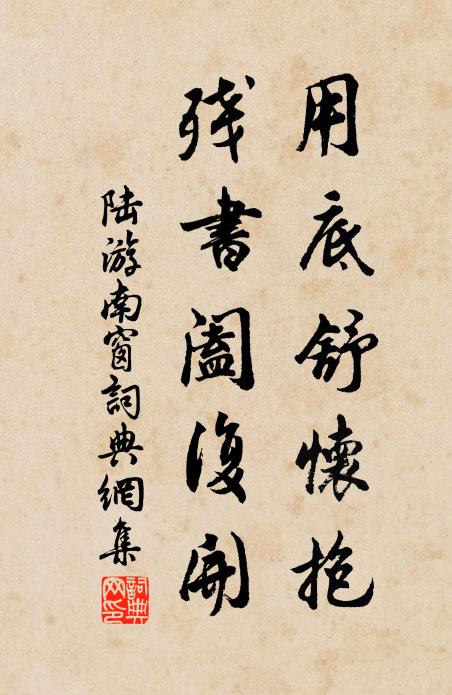 用底舒懷抱
残書闔復開
陸游南窗詞典網集
詞典網印